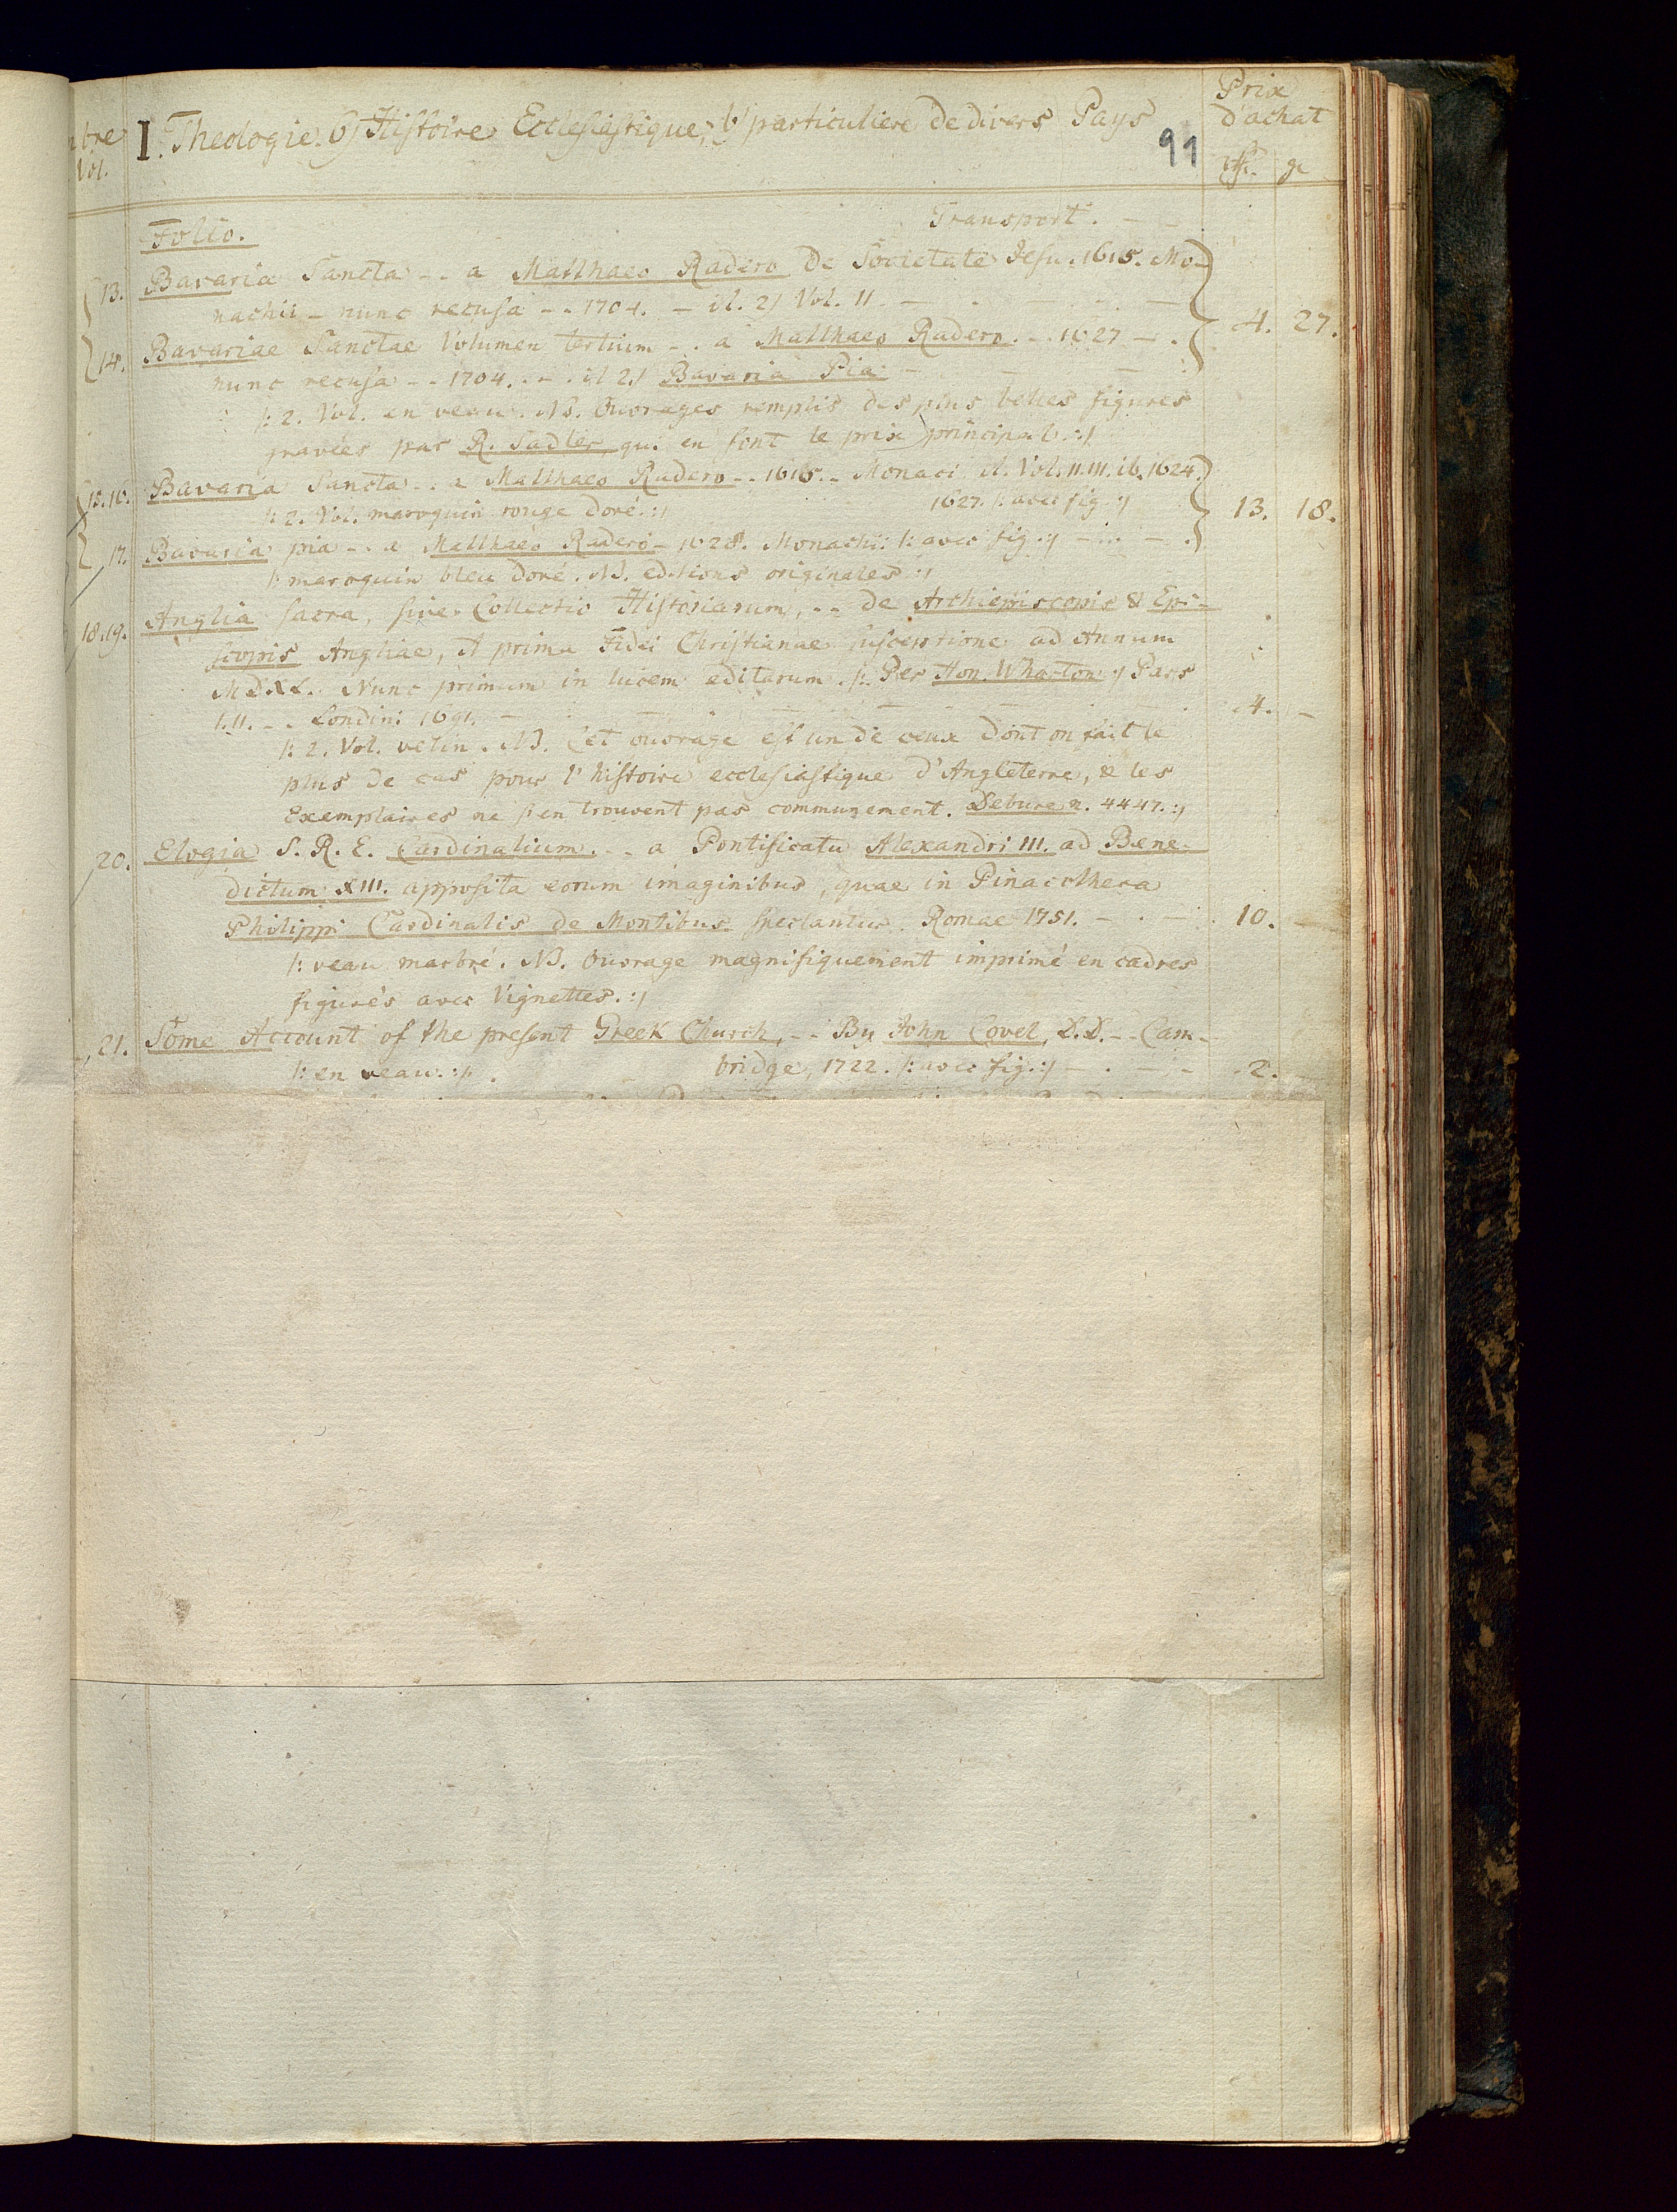 bre
Vol.
I. Theologie. 6) Histoire Ecclesiastique; b) particuliere de divers Pays
91
Prix
d'achat
gr
Transport. - -
Folio.
13. Bavaria Sancta - - a Matthaeo Radero de Societate Jesu. 1615. Mo-
nachii - nunc recusa - - 1704. - it. 2) Vol. II. -
14. Bavariae Sanctae Volumen tertium - . a Matthaeo Radero. - 1627 - . 4. 27.
nunc recusa - - 1704. - - it 2.) Bavaria Pia. -
|: 2. Vol. en veau. NB. Ouvrages remplis des plus belles figures
gravées par R. Sadler qui en font le prix principal. :|
15.16. Bavaria Sancta - . a Matthaeo Radero - - 1615. - Monaci it. Vol. II. III. ib. 1624.
|: 2. Vol. maroquin rouge doré. :| 1627. |: avec fig. :| 13. 18.
17. Bavaria pia - . a Matthaeo Radero - 1628. Monachii |: avec fig. :| - . . - .
|: maroquin bleu doré. NB. editions originales :|
18.19. Anglia sacra, sive Collectio Historiarum, - - de Archiepiscopis & Epi-
scopis Angliae, A prima Fidei Christianae susceptione ad Annum
MDXL. Nunc primum in lucem editarum. |: Per Hen. Wharton :| Pars
I. II. - . Londini 1691. - 4. -
|: 2. Vol. velin. NB. Cet ouvrage est un de ceux dont on fait le
plus de cas pour l'histoire ecclesiastique d'Angleterre, & les
Exemplaires ne s'en trouvent pas communement. Debure n. 4447. :|
20. Elogia S. R. E. Cardinalium. - - a Pontificatu Alexandri III. ad Bene-
dictum XIII. apposita eorum imaginibus, quae in Pinacotheca
Philippi Cardinalis de Montibus spectantur. Romae 1751. - . - . 10. -
|: veau marbré. NB. Ouvrage magnifiquement imprimé en cadres
figurés avec Vignettes. :|
21. Some Account of the present Greek Church, - - By John Covel, D.D. - - Cam-
|: en veau. :| . bridge, 1722. |: avec fig. :| - . - - 2. -